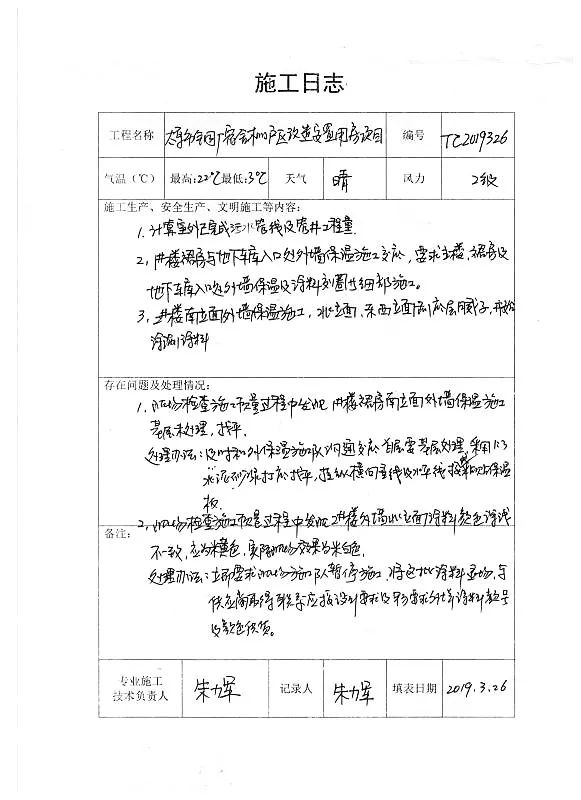 施工日志
工程名称 宿舍和户区改造安置用房项目 编号 TC2019326
气温（℃） 最高:22℃最低:3℃ 天气 晴 风力 2级
施工生产、安全生产、文明施工等内容：
1. 计算室外已完成污水管线及管井工程量.
2, 1#楼裙房与地下车库入口处外墙保温施工交底，要求主楼，裙房及
地下车库入口处外墙保温及涂料细部施工。
3, 2#楼南立面外墙保温施工，北立面，东西立面刮底层腻子，开始
涂刷涂料
存在问题及处理情况：
1. 现场检查施工质量过程中发现 1#楼裙房南立面外墙保温施工
基层未处理，找平.
处理办法：及时和外保温施工队沟通交底首层要基层处理，采用1:3
水泥砂浆打底找平，挂纵横向垂线及水平线粘贴保温
板.
2, 现场检查施工质量过程中发现2#楼外墙北立面涂料颜色深浅
备注：
不一致，应为米黄色，实际现场效果为米白色.
处理办法：立即要求现场施工队暂停施工，将色批涂料退场，与
供应商取得联系应按设计要求及要求供养涂料型号
及颜色供货。
专业施工
技术负责人 朱力军 记录人 朱力军 填表日期 2019.3.26